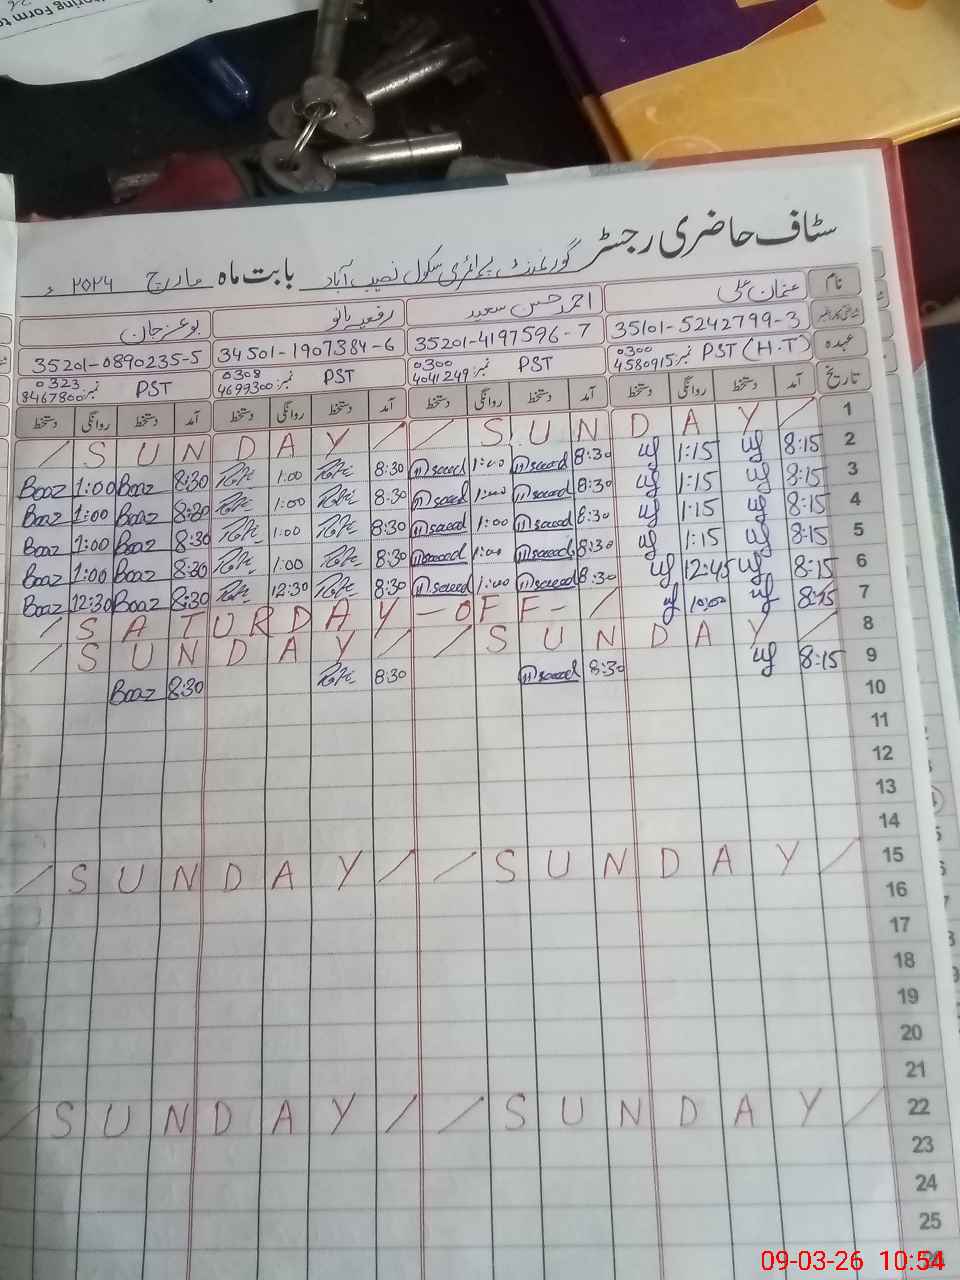 oring Form to
سٹاف حاضری رجسٹر گورنمنٹ پرائمری سکول نصیب آباد بابت ماہ مارچ ۲۰۲۶ ء
نام عثمان علی احمد حسن سعید رفعیہ بانو بوعز جان
35101-5242799-3 35201-4197596-7 34501-1907384-6 35201-0890235-5
عہدہ PST (H.T) نمبر: 0300 4580915 PST نمبر: 0300 4041249 PST نمبر: 0308 4699300 PST نمبر: 0323 8467800
تاریخ آمد دستخط روانگی دستخط آمد دستخط روانگی دستخط آمد دستخط روانگی دستخط آمد دستخط روانگی دستخط
/ S U N D A Y / / S U N D A Y / 1
Booz 1:00 Booz 8:30 1:00 8:30 saeed 1:00 saeed 8:30 1:15 8:15 2
Booz 1:00 Booz 8:30 1:00 8:30 saeed 1:00 saeed 8:30 1:15 8:15 3
Booz 1:00 Booz 8:30 1:00 8:30 saeed 1:00 saeed 8:30 1:15 8:15 4
Booz 1:00 Booz 8:30 1:00 8:30 saeed 1:00 saeed 8:30 1:15 8:15 5
Booz 12:30 Booz 8:30 12:30 8:30 saeed 1:00 saeed 8:30 12:45 8:15 6
/ S A T U R D A Y - O F F - / 10:00 8:15 7
/ S U N D A Y / / S U N D A Y / 8
Booz 8:30 8:30 saeed 8:30 8:15 9
10
11
12
13
14
/ S U N D A Y / / S U N D A Y / 15
16
17
18
19
20
21
/ S U N D A Y / / S U N D A Y / 22
23
24
25
09-03-26 10:54